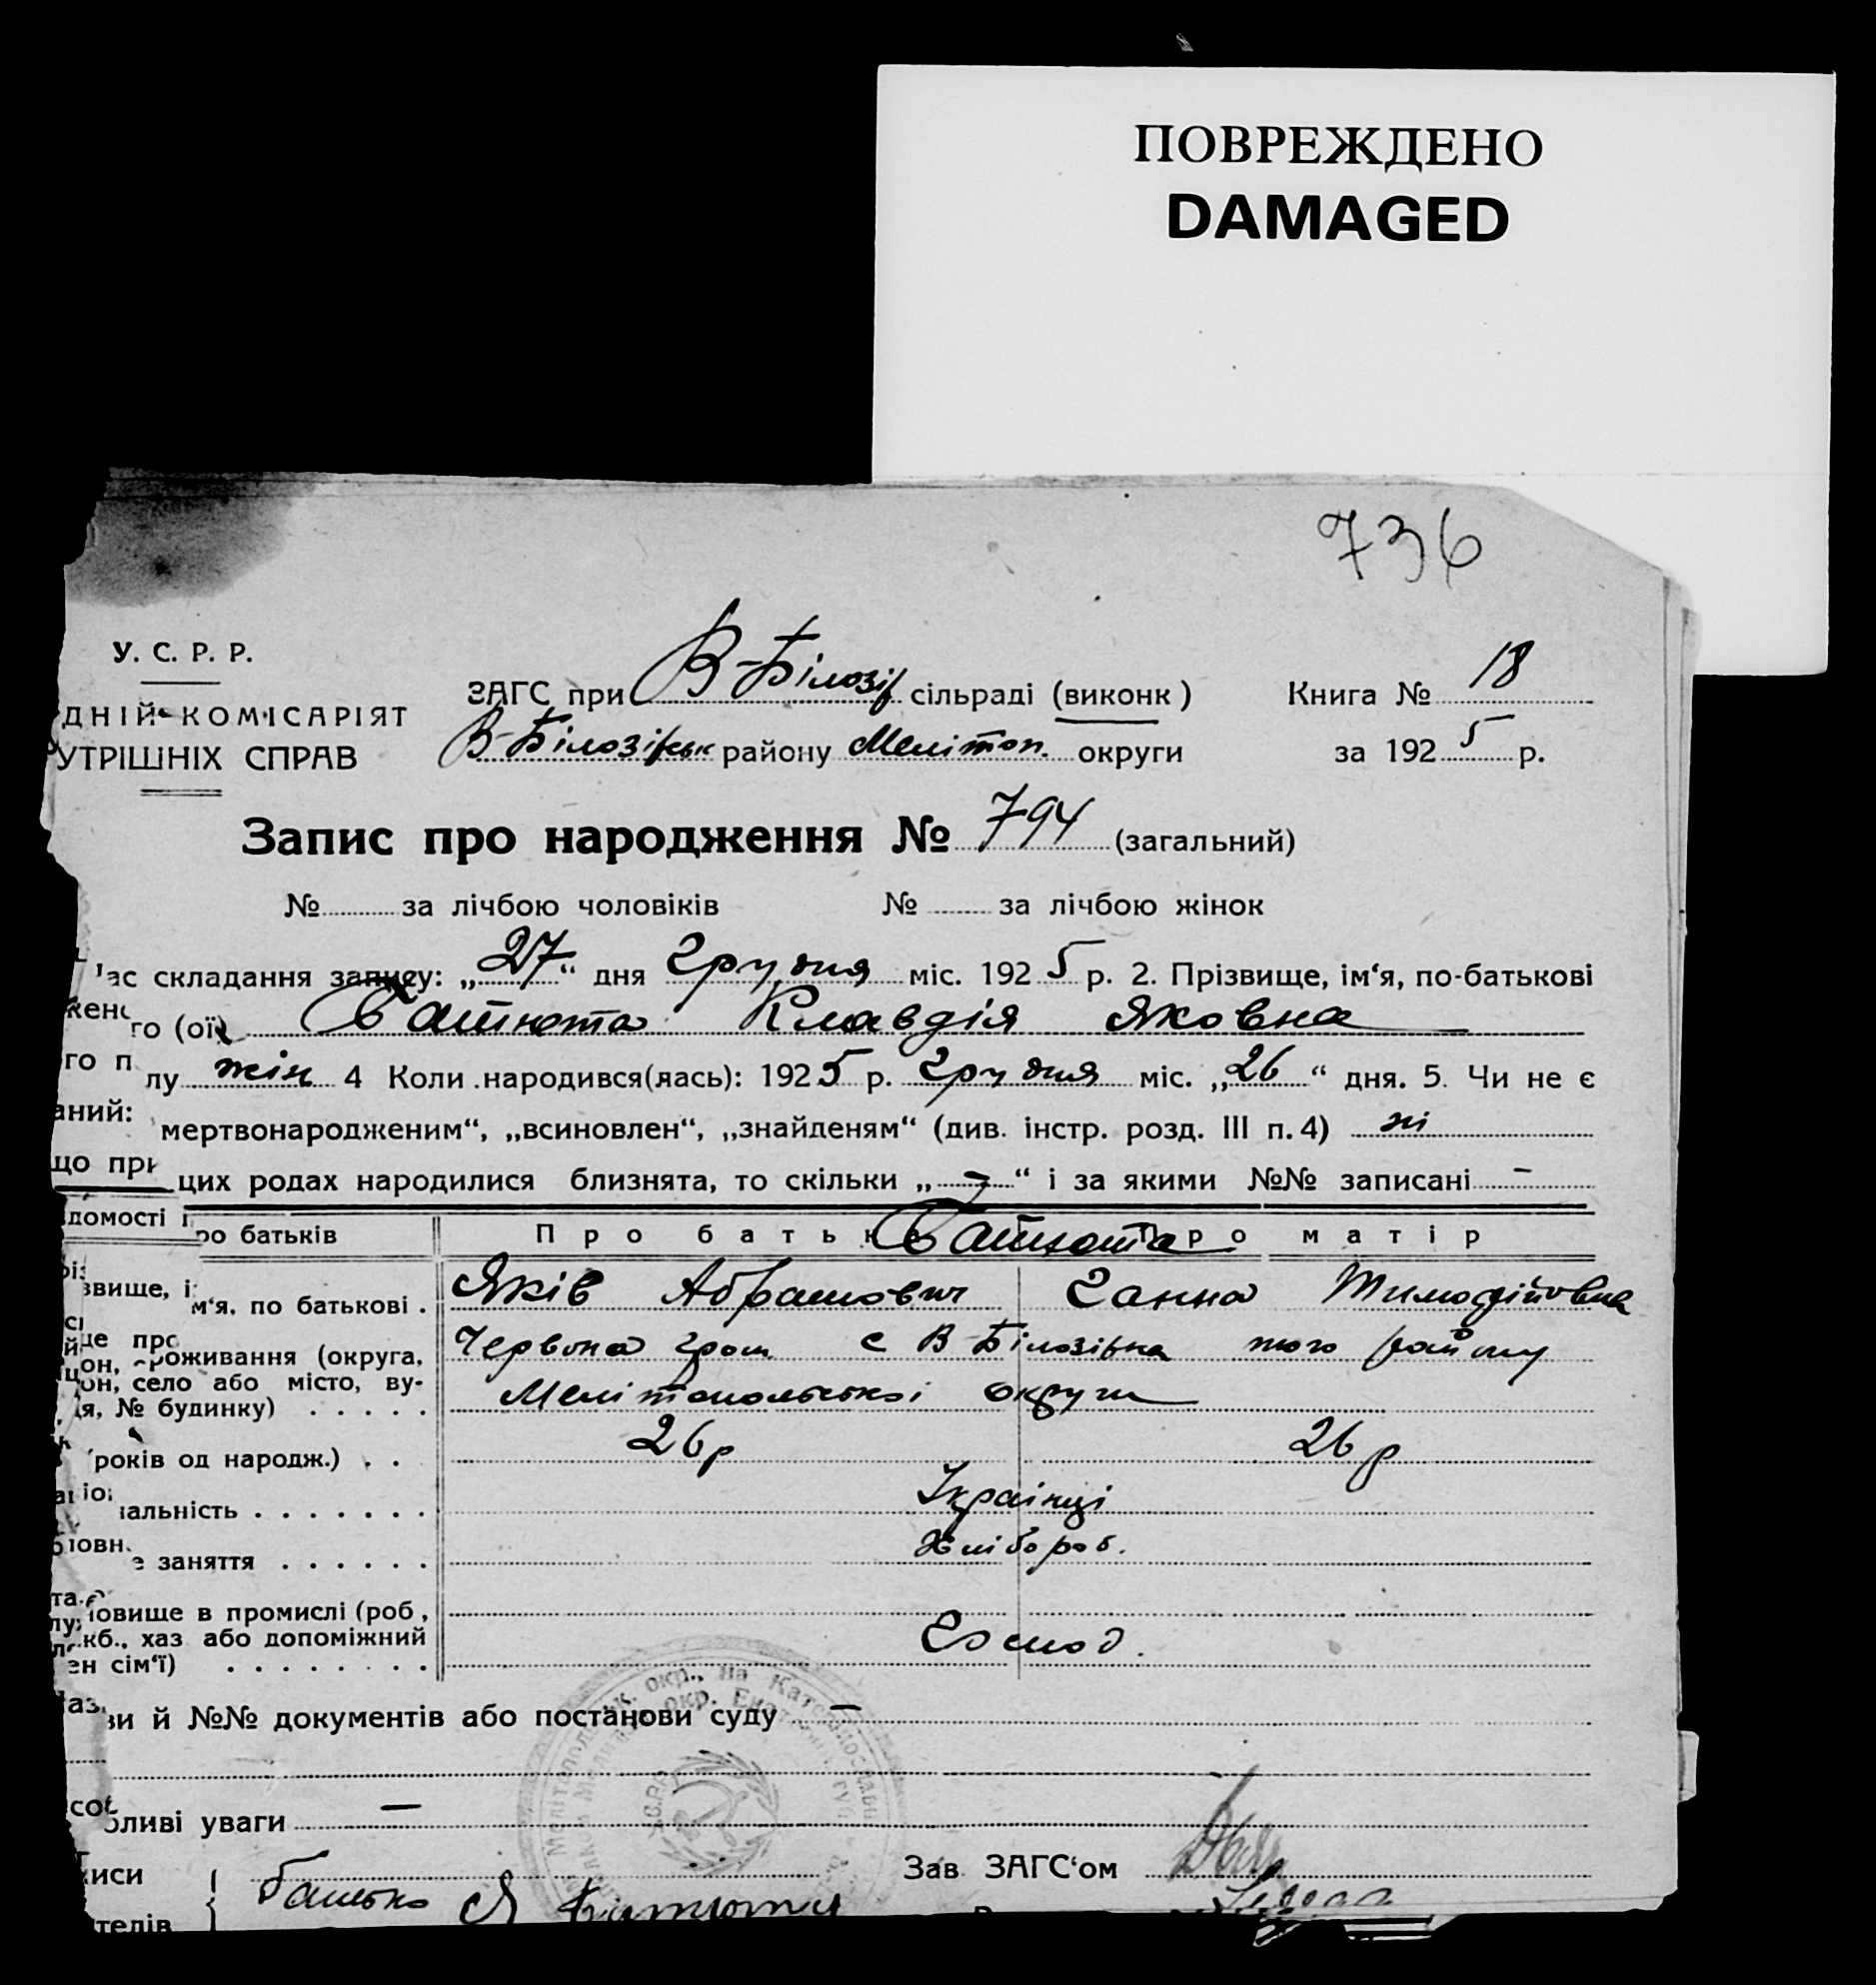 ПОВРЕЖДЕНО
DAMAGED
736
У. С. Р. Р.
ДНІЙ КОМІСАРІЯТ
УТРІШНІХ СПРАВ
ЗАГС при В-Білозір сільраді (виконк)
Книга № 18
В-Білозірськ району Мелітоп. округи
за 1925 р.
Запис про народження № 794 (загальний)
№ за лічбою чоловіків № за лічбою жінок
час складання запису: „27“ дня Грудня міс. 1925 р. 2. Прізвище, ім‘я, по-батькові
женого (ої) Батюта Клавдія Яковна
го полу жін 4 Коли народився(лась): 1925 р. Грудня міс. „26“ дня. 5. Чи не є
аний: мертвонародженим“, „всиновлен“, „знайденям“ (див. інстр. розд. III п. 4) ні
що при цих родах народилися близнята, то скільки „-“ і за якими №№ записані -
домості про батьків
Про батька Про матір
Батюта
звище, ім‘я, по батькові . Яків Абрамович Ганна Тимофійовна
це проживання (округа, Червона С В Білозірка того району
он, село або місто, ву-
я, № будинку) . . . . . Мелітопольської округи
років од народж.) . . 26 р 26 р
іональність . . . . . . . Українці
овне заняття . . . . . . Хлібороб.
тановище в промислі (роб,
кб., хаз або допоміжний Господ.
ен сім‘ї) . . . . . . . .
ви й №№ документів або постанови суду —
собливі уваги —
Зав ЗАГС‘ом
иси
Батько Я Батюта
телів